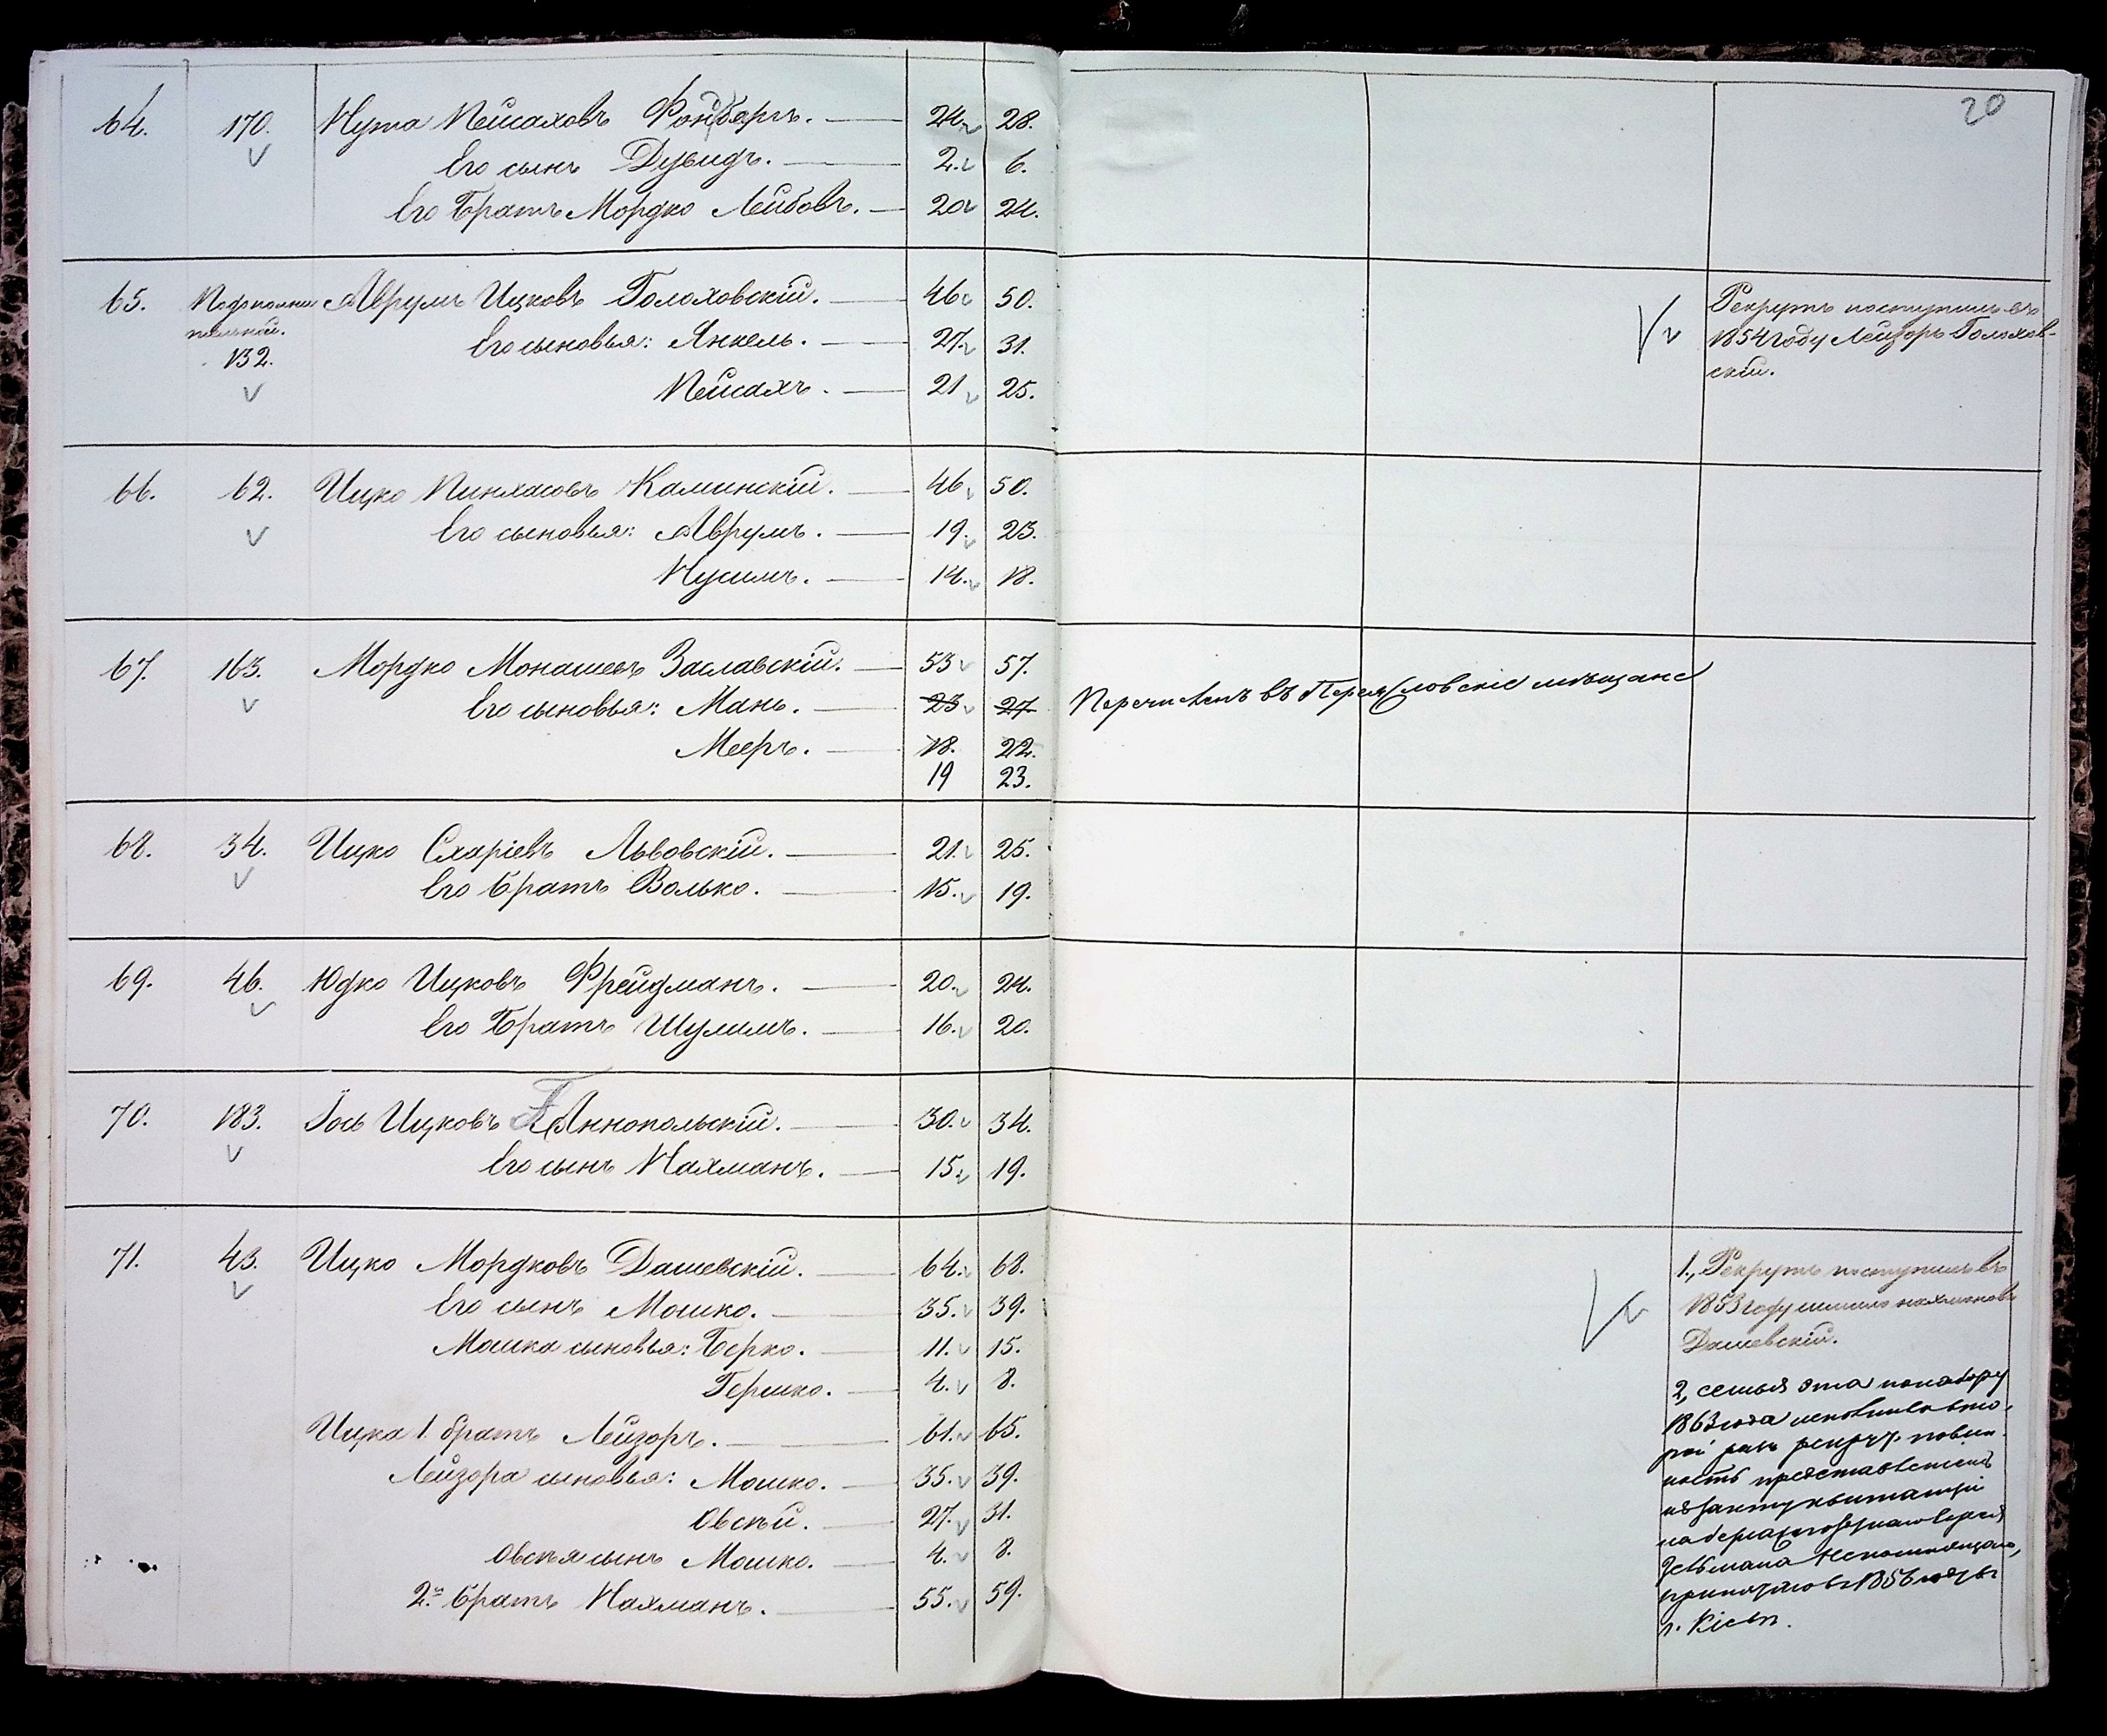 20
64. 170. Нута Пейсаховъ Фонбергъ. 24. 28.
Его сынъ Дувидъ. 2. 6.
Его братъ Мордко Лейбовъ. 20 24.
65. Аврумъ Ицковъ Голоховскій. 46 50.
132. Его сыновья: Янкель. 27. 31.
Пейсахъ. 21 25.
Рекрутъ поступилъ въ
1854 году Лейзоръ Голохов-
скій.
66. 62. Ицко Пинхасовъ Каминскій. 46. 50.
Его сыновья: Аврумъ. 19. 23.
Нусимъ. 14. 18.
67. 163. Мордко Монашевъ Заславскій. 53 57.
Его сыновья: Мань. 23 27
Мееръ. 18. 22.
19 23.
Перечисленъ въ мѣщане
68. 34. Ицко Схаріевъ Львовскій. 21. 25.
Его братъ Волько. 15. 19.
69. 46. Юдко Ицковъ Фрейдманъ. 20. 24.
Его братъ Шулимъ. 16. 20.
70. 183. Іось Ицковъ Аннопольскій. 30. 34.
Его сынъ Нахманъ. 15. 19.
71. 43. Ицко Мордковъ Дашевскій. 64. 68.
Его сынъ Мошко. 35. 39.
Мошка сыновья: Берко. 11. 15.
Гершко. 4. 8.
Ицка 1. братъ Лейзоръ. 61. 65.
Лейзора сыновья: Мошко. 35. 39.
Овсѣй. 27. 31.
Овсѣя сынъ Мошко. 4. 8.
2й братъ Нахманъ. 55. 59.
1., Рекрутъ поступилъ въ
1853 году Нахмановъ
Дашевскій.
2, семья эта по набору
1863 года исполнила вто-
рой разъ рекрут. повин-
ность представленіемъ
квитанціи
1856
г. Кіевѣ.